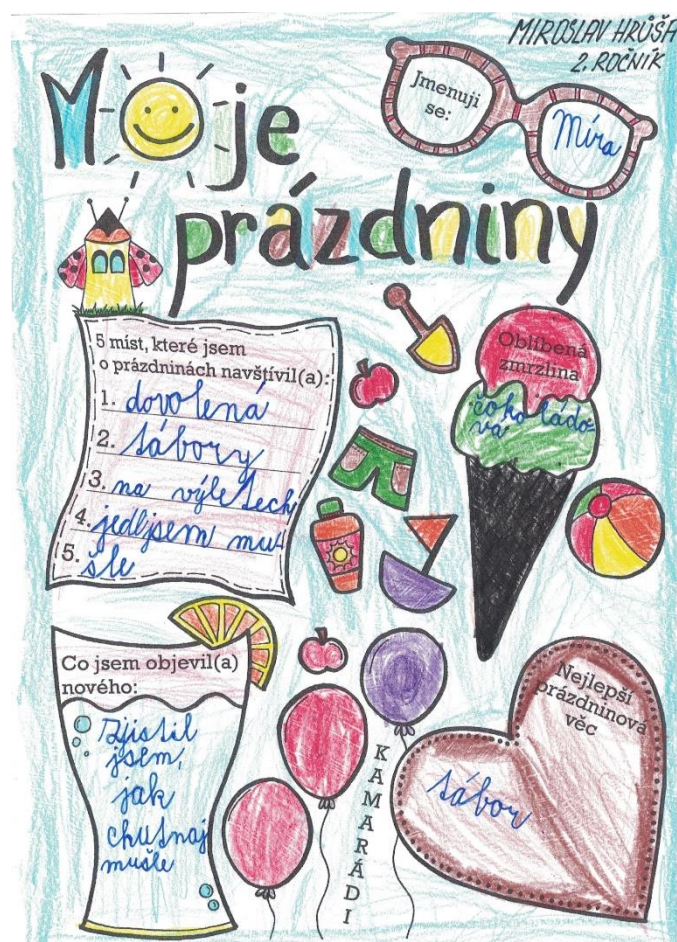 MIROSLAV HRŮŠA
2. ROČNÍK
Moje
prázdniny
Jmenuji
se:
Míra
5 míst, které jsem
o prázdninách navštívil(a):
1. dovolená
2. tábory
3. na výletech
4. jedl jsem mu-
5. šle
Oblíbená
zmrzlina
čokoládo-
vá
Co jsem objevil(a)
nového:
zjistil
jsem,
jak
chutnaj
mušle
KAMARÁDI
Nejlepší
prázdninová
věc
tábor